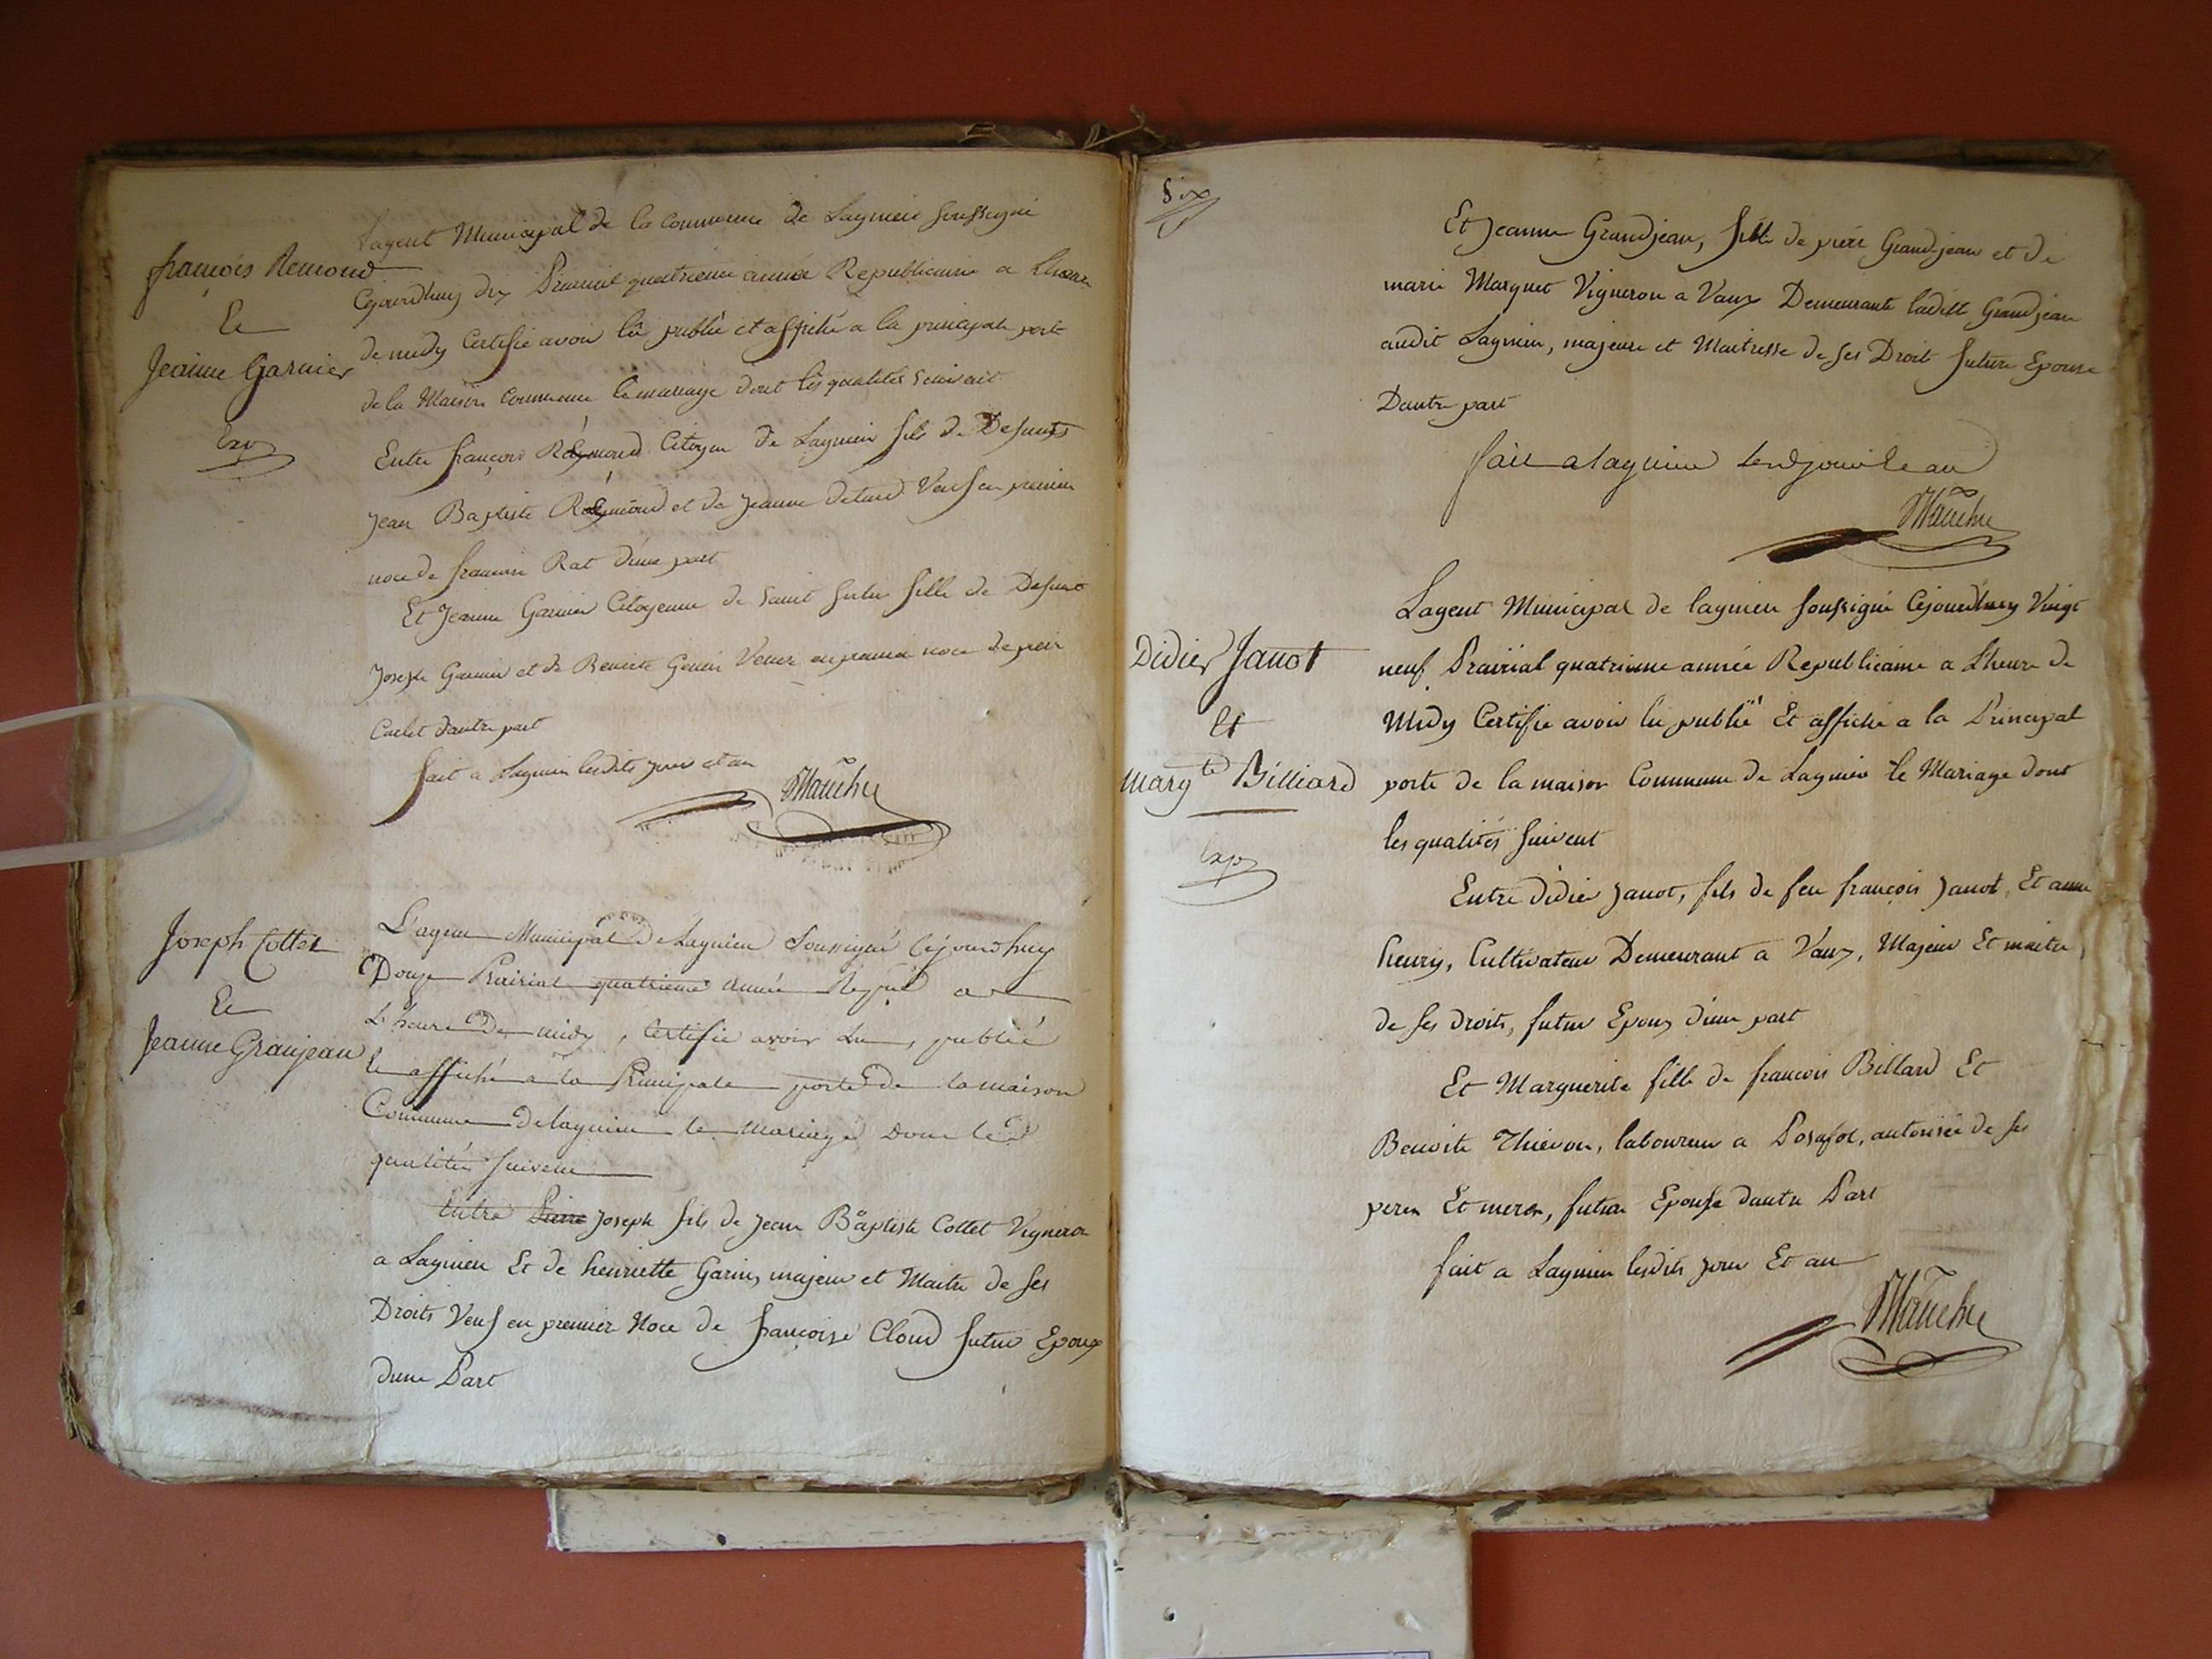 François Remond
Et
Jeanne Garnier
Exp
L'agent Municipal de la Commune de Lagnieu soussigné
Cejourdhuy dix Prairial quatrieme année Republicaine a Lheure
de midy Certifie avoir lû publié et affiché a la principale porte
de la Maison Commune le mariage dont les qualités suivent
Entre françois Rémond Citoyen de Lagnieu fils de Defunts
Jean Baptiste Rémond et de Jeanne Veuf en premier
noce de francoise Rat d'une part
Et Jeanne Garnier Citoyenne de Saint fille de Defunt
Joseph Garnier et de Benoite Genin Veuve en premier noce de pierre
d'autre part
fait a Lagnieu lesdits jour et an
Joseph Cottet
Et
Jeanne Granjean
L'agent Municipal de Lagnieu Soussigné Cejourdhuy
Douze Prairial quatrieme année Repub a
L'heure De midy, Certifie avoir Lu, publié
Et affiché a la Principale porte de la maison
Commune De lagnieu le mariage Dont les
qualités suivent
Entre Pierre Joseph fils de Jean Baptiste Cottet Vigneron
a Lagnieu Et de henriette Garin, majeur et Maitre de ses
Droits Veuf en premier Noce de francoise Cloud futur Epoux
dune Part
Six
Et Jeanne Grandjean, fille de pierre Grandjean et de
marie Marguet Vigneron a Vaux Demeurante laditte Grandjean
audit Lagnieu, majeure et Maitresse de ses Droit future Epouse
Dautre part
fait a lagnieu lesd jour et an
Didier Janot
Et
Margte Billiard
Exp
Lagent Municipal de lagnieu soussigné Cejourdhuy Vingt
neuf Prairial quatrieme année Republicaine a Lheure de
Midy Certifie avoir lu publié Et affiché a la Principal
porte de la maison Commune de Lagnieu le Mariage dont
les qualités suivent
Entre Didier Janot, fils de feu françois Janot, Et anne
henry, Cultivateur Demeurant a Vaux, Majeur Et maitre
de ses droits, futur Epoux d'une part
Et Marguerite fille de francois Billard Et
Benoite Thievon, laboureur a Posafol, autorisée de ses
peres Et meres, future Epouse dautre Part
fait a Lagnieu lesdits jour Et an